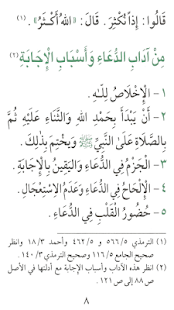 قَالُوا: إِذاً نُكْثِرَ. قَالَ: «اللهُ أَكْثَرُ». (١)
مِنْ آدَابِ الدُّعَاءِ وَأَسْبَابِ الْإِجَابَةِ (٢)
١ - الْإِخْلَاصُ لِلَّهِ.
٢ - أَنْ يَبْدَأَ بِحَمْدِ اللهِ وَالثَّنَاءِ عَلَيْهِ ثُمَّ
بِالصَّلَاةِ عَلَى النَّبِيِّ ﷺ وَيَخْتِمَ بِذَلِكَ.
٣ - الْجَزْمُ فِي الدُّعَاءِ وَالْيَقِينُ بِالْإِجَابَةِ.
٤ - الْإِلْحَاحُ فِي الدُّعَاءِ وَعَدَمُ الِاسْتِعْجَالِ.
٥ - حُضُورُ الْقَلْبِ فِي الدُّعَاءِ.
(١) الترمذي ٥٦٦/٥ و ٤٦٢/٥ وأحمد ١٨/٣ وانظر
صحيح الجامع ١١٦/٥ وصحيح الترمذي ١٤٠/٣.
(٢) انظر هذه الآداب وأسباب الإجابة مع أدلتها في الأصل
ص ٨٨ إلى ص ١٢١.
٨